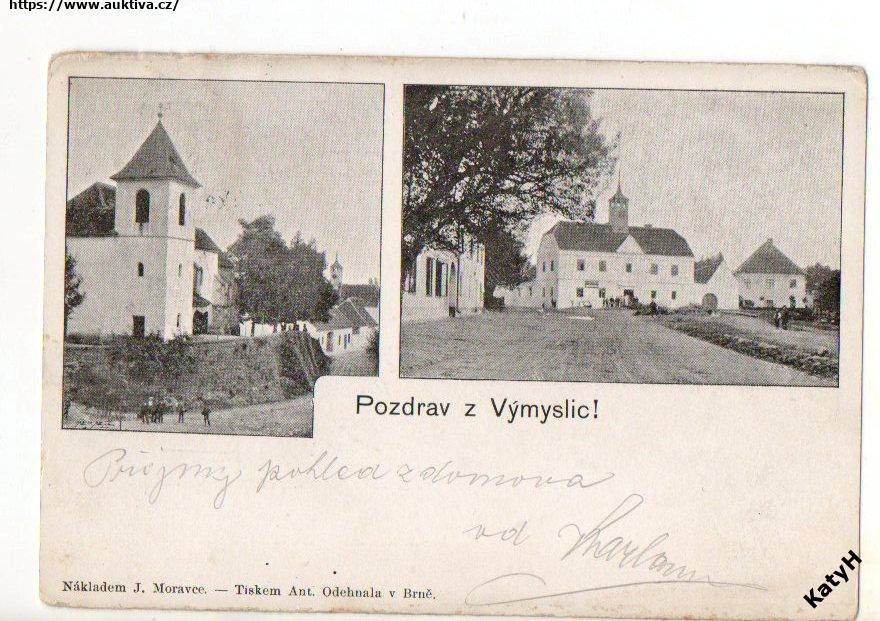 https://www.auktiva.cz/
Pozdrav z Výmyslic!
pohled z domova
od
Nákladem J. Moravce. — Tiskem Ant. Odehnala v Brně.
KatyH